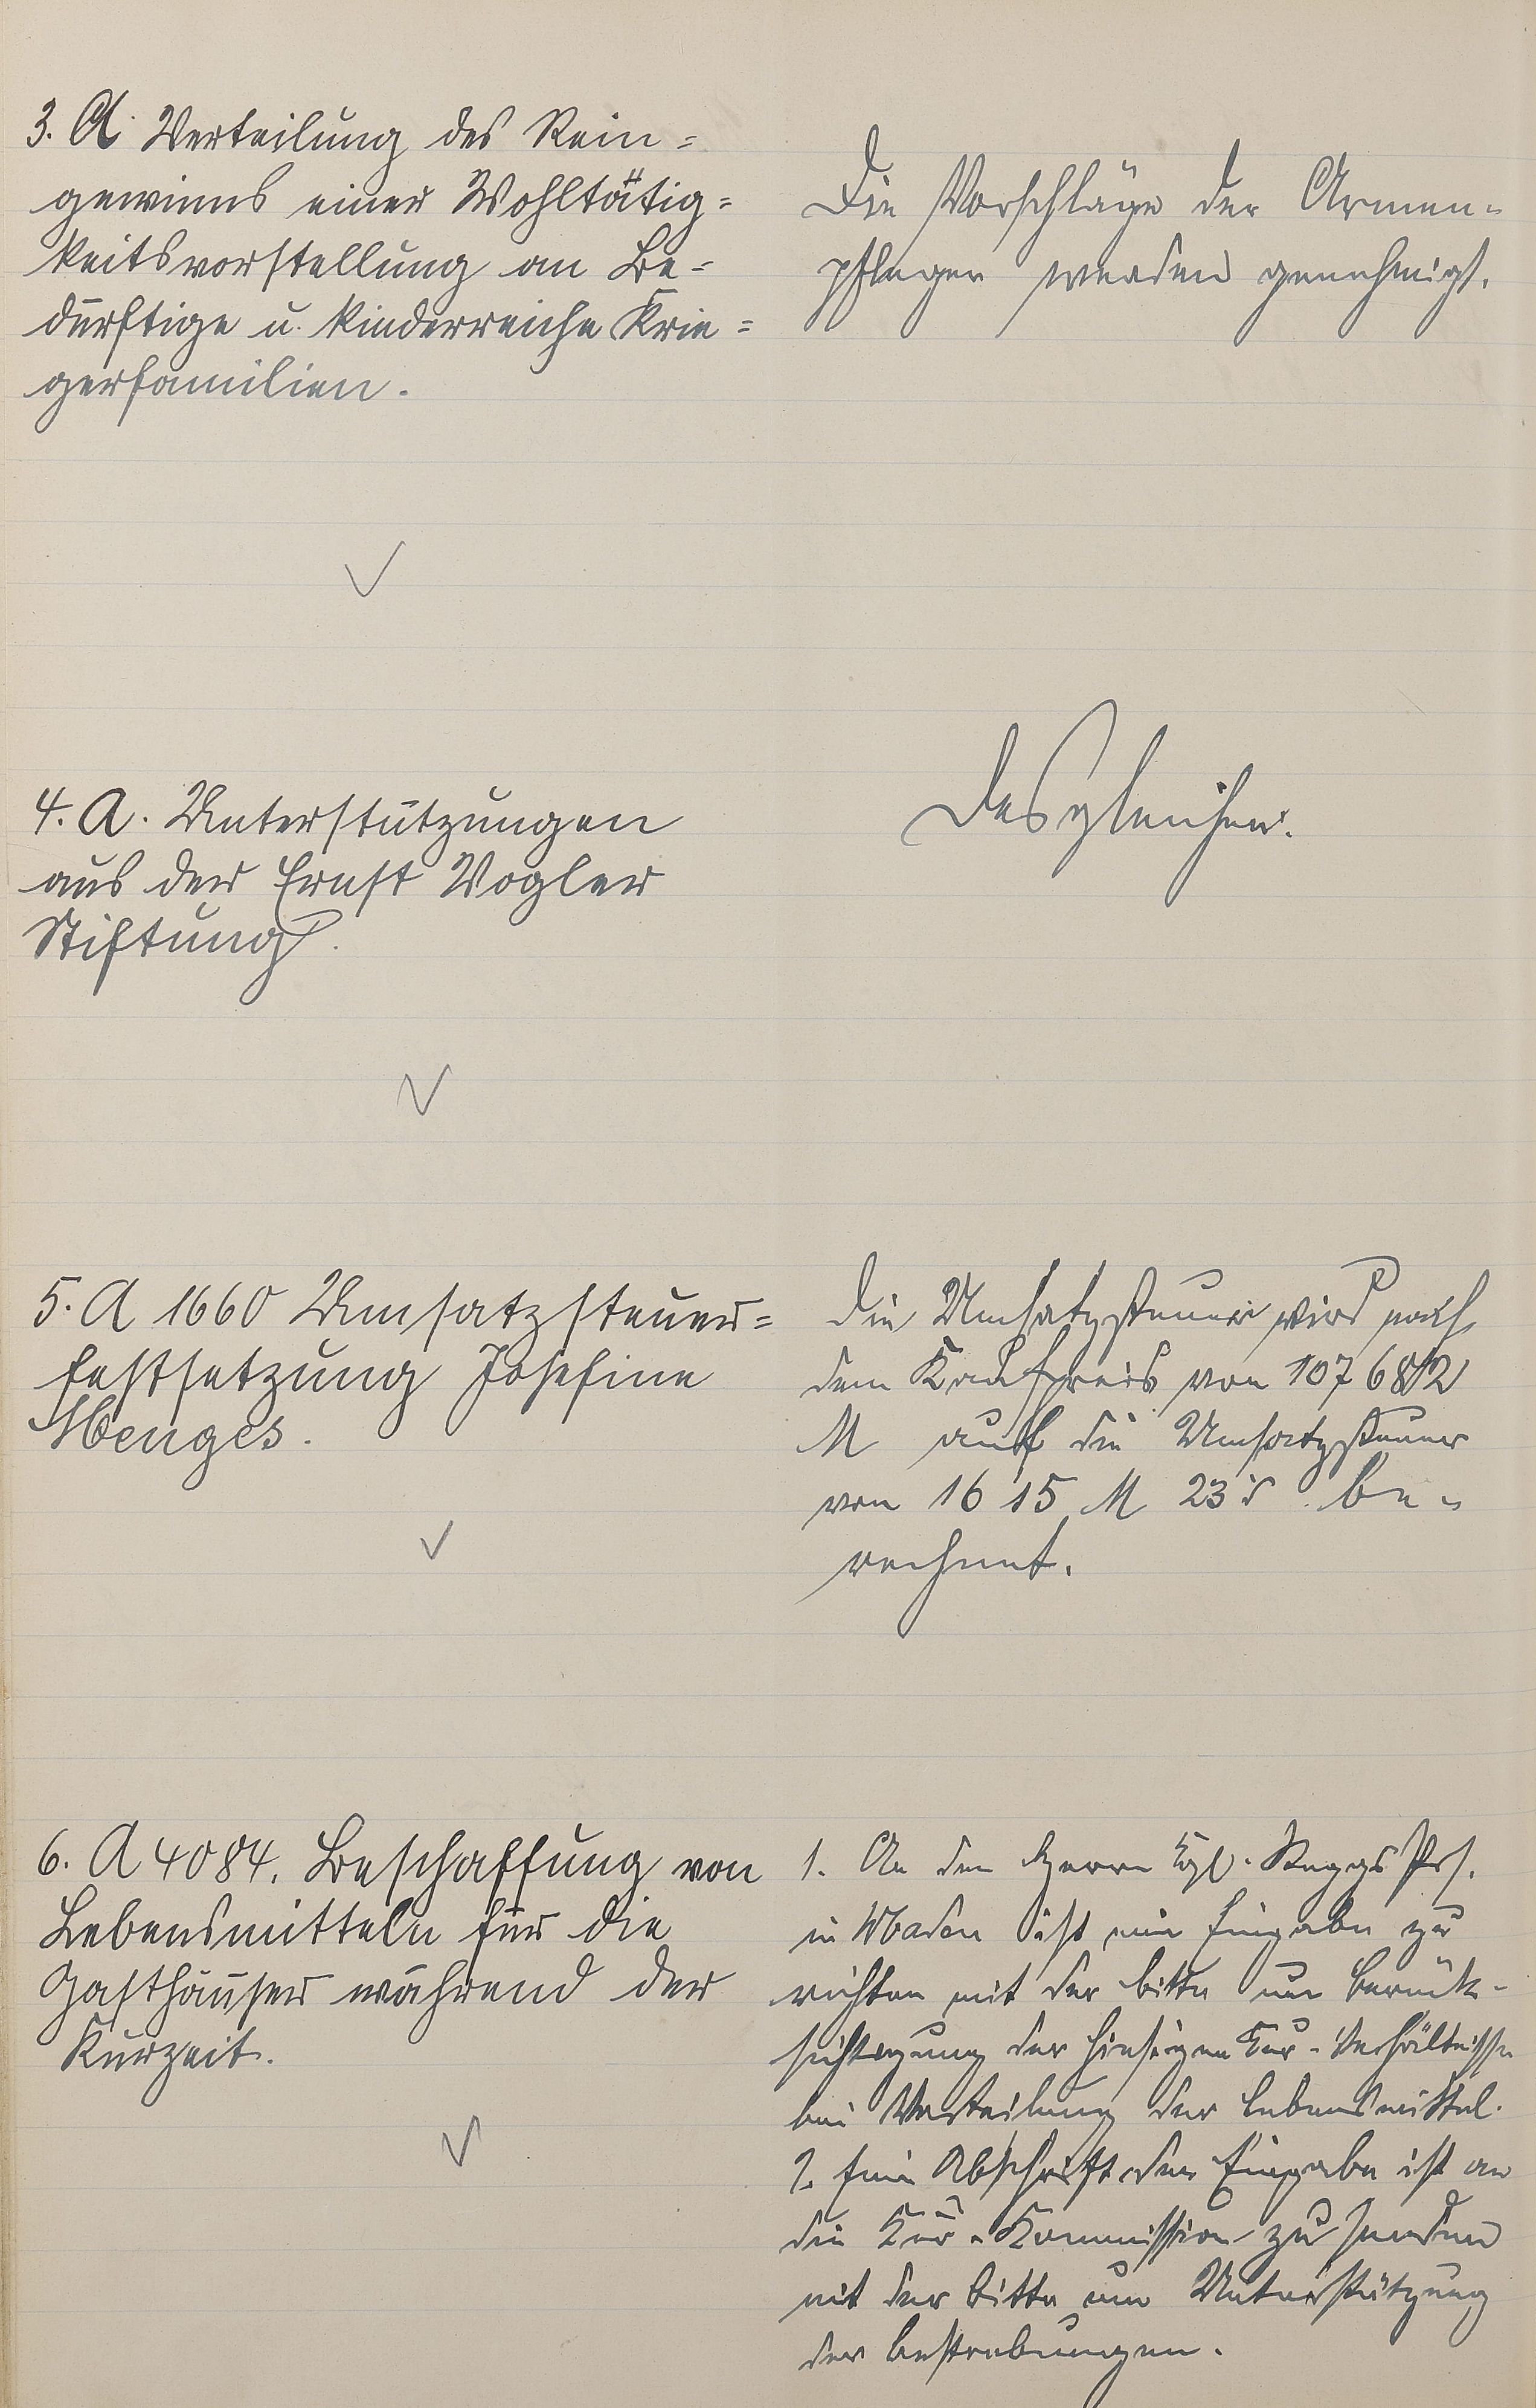 3. A. Verteilung des Rein=
gewinns einer Wohltätig=
keitsvorstellung an Be=
dürftige u. kinderreiche Krie=
gerfamilien.
Die Vorschläge der Armen-
pfleger werden genehmigt.
4. A. Unterstützungen
aus der Ernst Vogler
Stiftung.
Desgleichen.
5. A 1660 Umsatzsteuer=
festsetzung Josefine
Menges.
Die Umsatzsteuer wird nach
dem Kaufpreis von 107 682
M auf die Umsatzsteuer
von 1615 M 23 ₰ be-
rechnet.
6. A 4084. Beschaffung von
Lebensmitteln für die
Gasthäuser während der
Kurzeit.
1. An den Herrn Kgl. Reggs Prs.
in Wbaden ist eine Eingabe zu
richten mit der Bitte um Berück-
sichtigung der hiesigen Kur-Verhältnisse
bei Verteilung der Lebensmittel.
2. Eine Abschrift der Eingabe ist an
die Kur-Kommission zu senden
mit der Bitte um Unterstützung
der Bestrebungen.